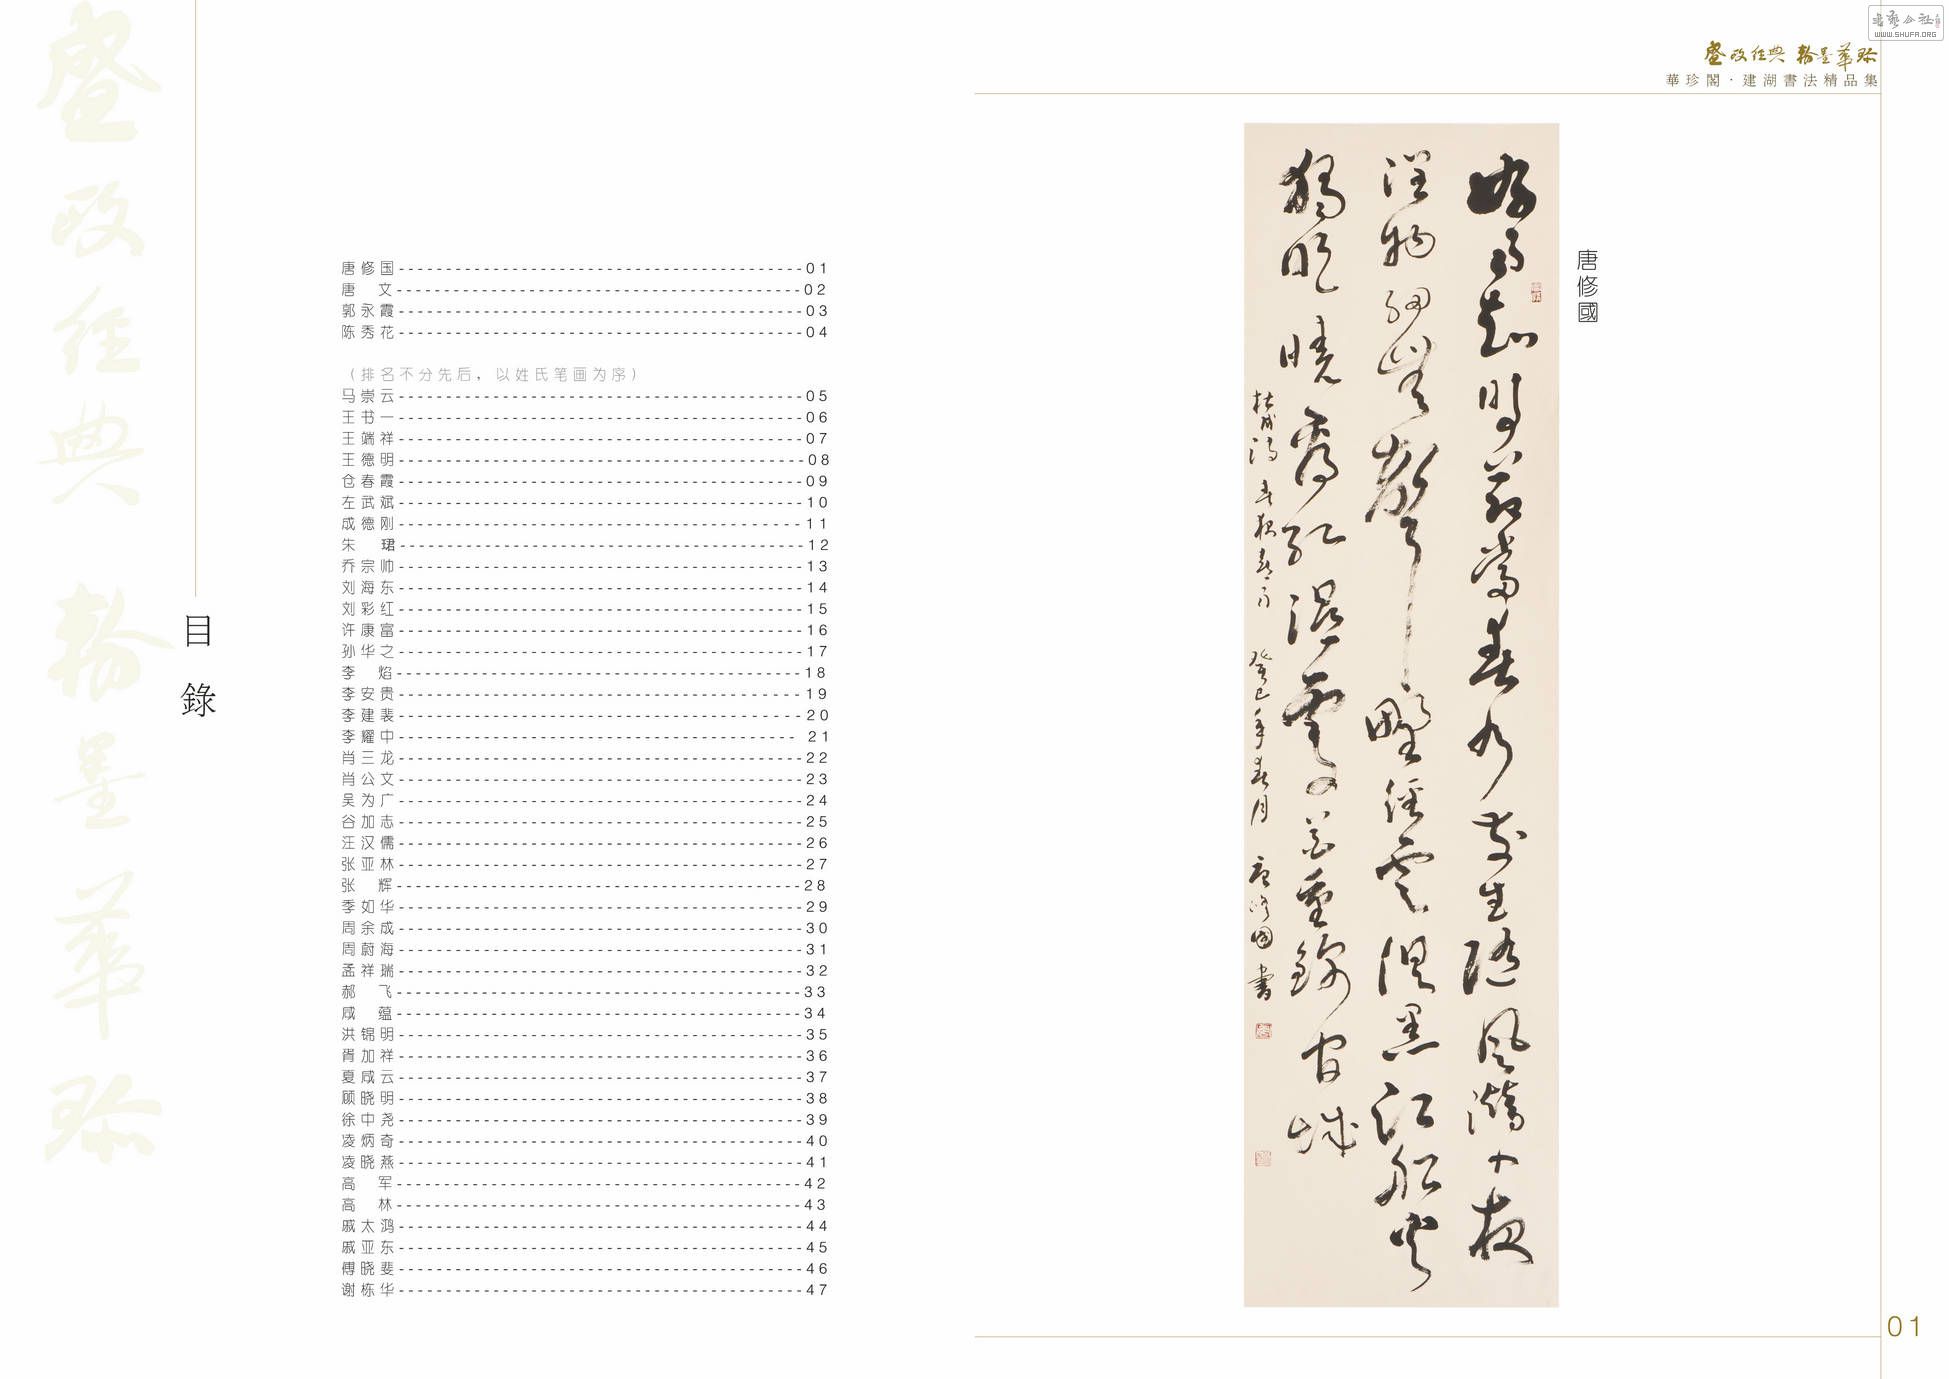 盛政经典 翰墨華珍
目錄
唐修国----------01
唐 文----------02
郭永霞----------03
陈秀花----------04
（排名不分先后，以姓氏笔画为序）
马崇云----------05
王书一----------06
王端祥----------07
王德明----------08
仓春霞----------09
左武斌----------10
成德刚----------11
朱 珺----------12
乔宗帅----------13
刘海东----------14
刘彩红----------15
许康富----------16
孙华之----------17
李 焰----------18
李安贵----------19
李建裴----------20
李耀中----------21
肖三龙----------22
肖公文----------23
吴为广----------24
谷加志----------25
汪汉儒----------26
张亚林----------27
张 辉----------28
季如华----------29
周余成----------30
周蔚海----------31
孟祥瑞----------32
郝 飞----------33
咸 蕴----------34
洪锦明----------35
胥加祥----------36
夏咸云----------37
顾晓明----------38
徐中尧----------39
凌炳奇----------40
凌晓燕----------41
高 军----------42
高 林----------43
臧太鸿----------44
臧亚东----------45
傅晓斐----------46
谢栋华----------47
書藝公社
WWW.SHUFA.ORG
盛政经典 翰墨華珍
華珍閣·建湖書法精品集
唐修國
好雨知時節當春乃發生隨風潛入夜
潤物細無聲野徑雲俱黑江船火
獨明曉看紅濕處花重錦官城
杜甫詩春夜喜雨 癸巳年春月 唐修國書
01